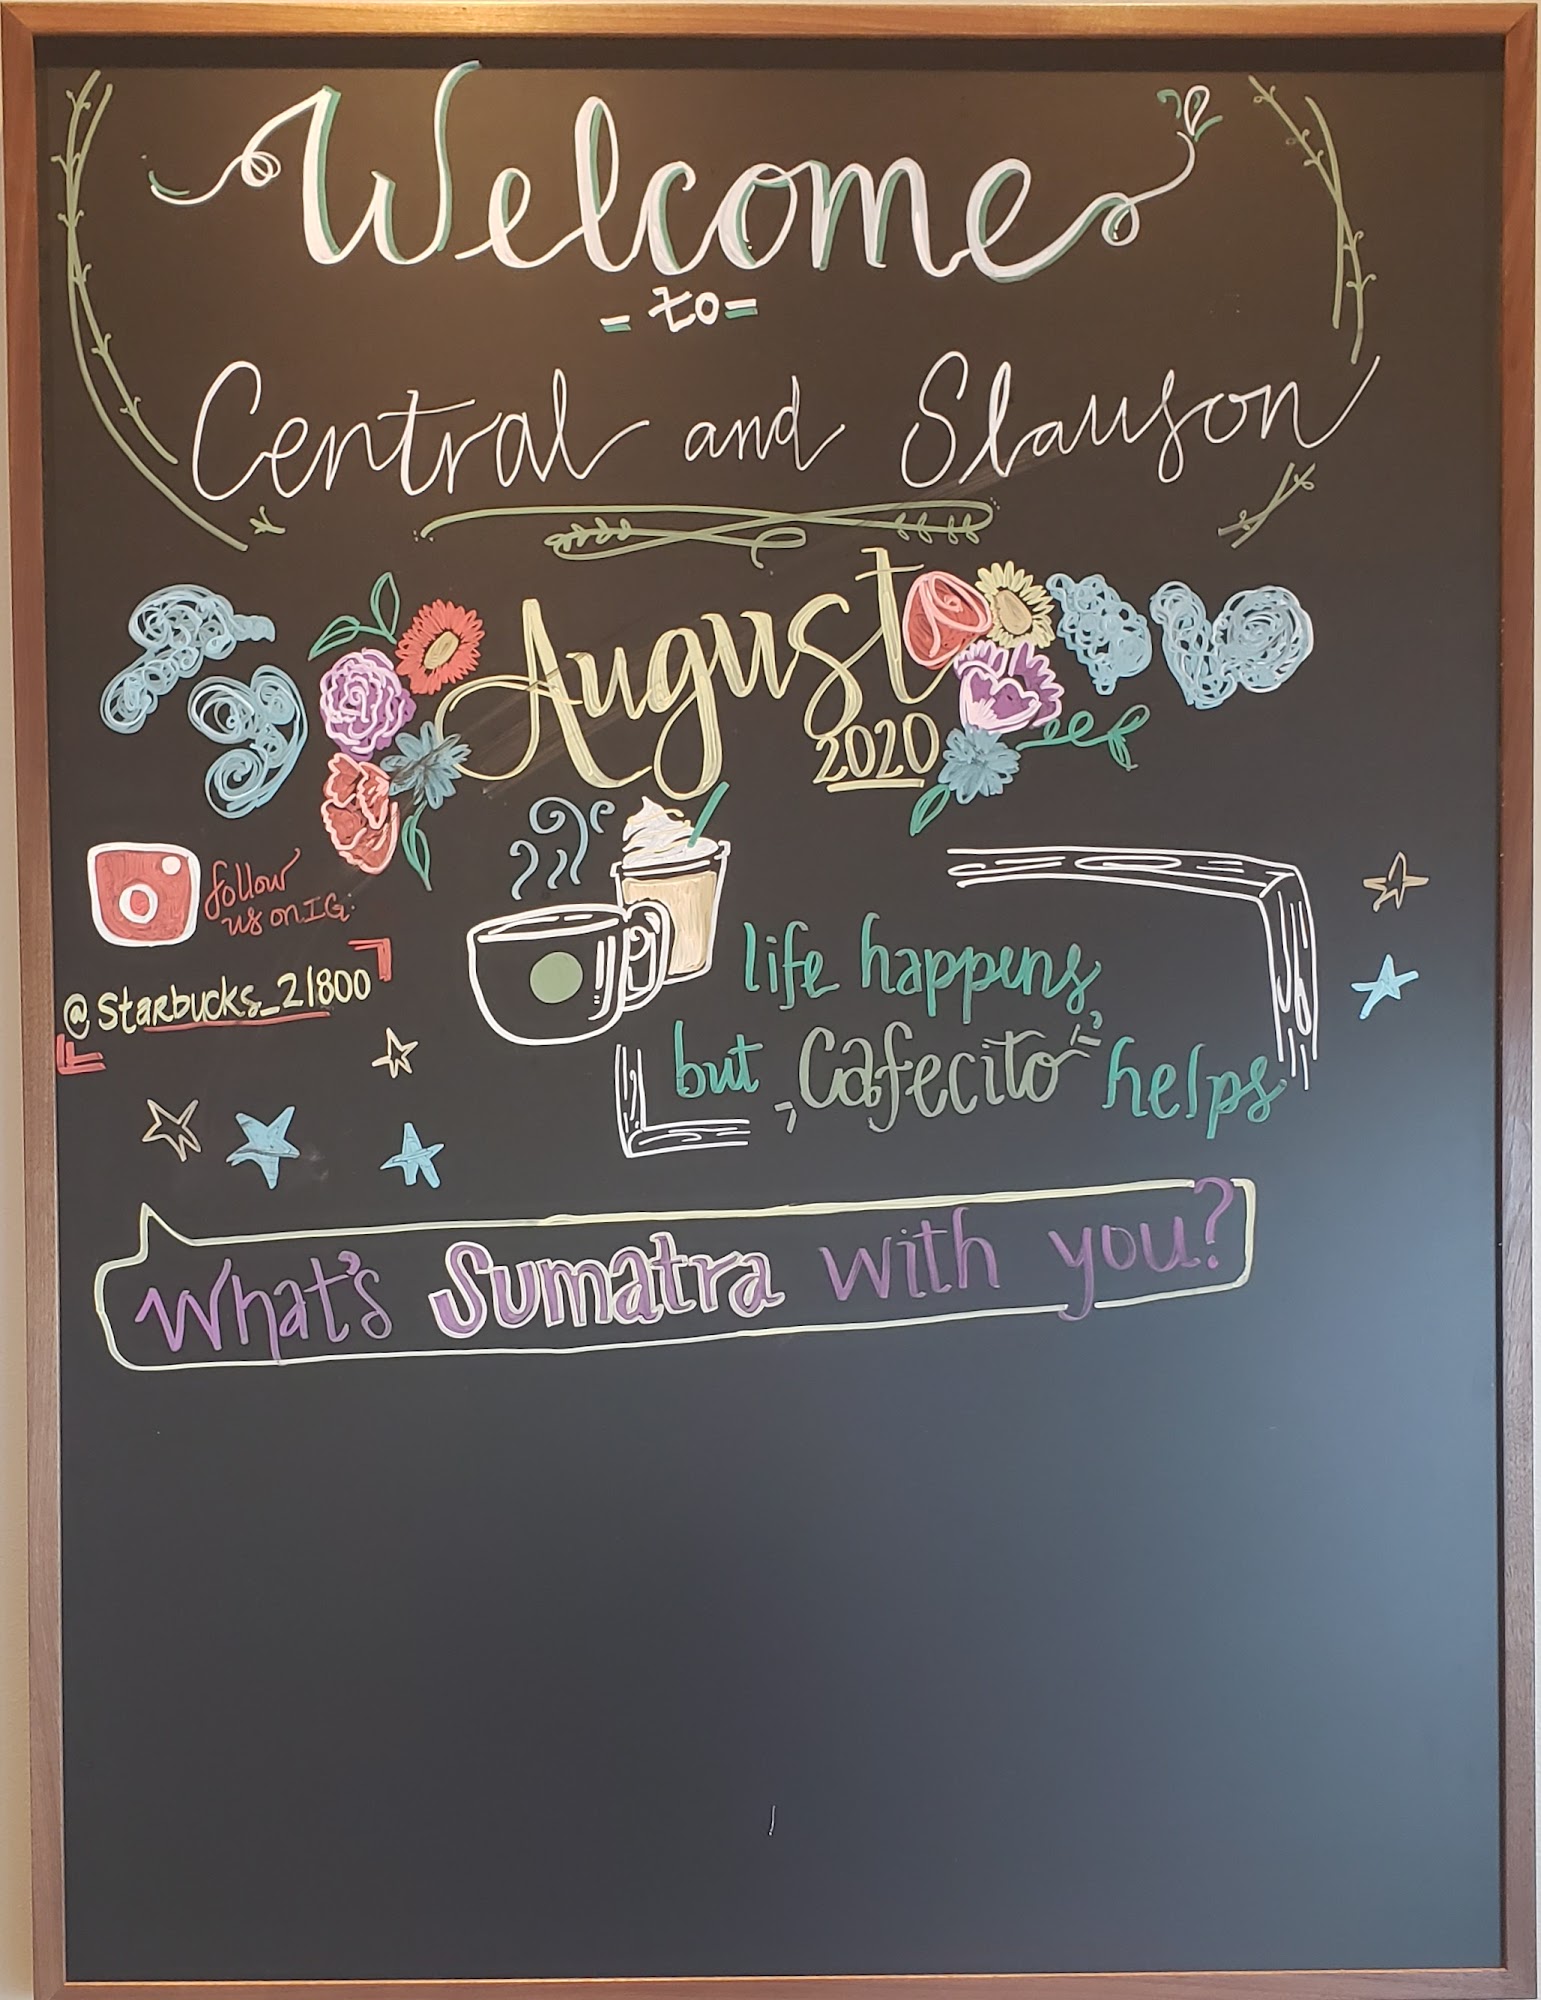 Welcome
- to -
Central and Slauson
August
2020
follow
us on IG:
@Starbucks_21800
life happens
but Cafecito helps
What's Sumatra with you?